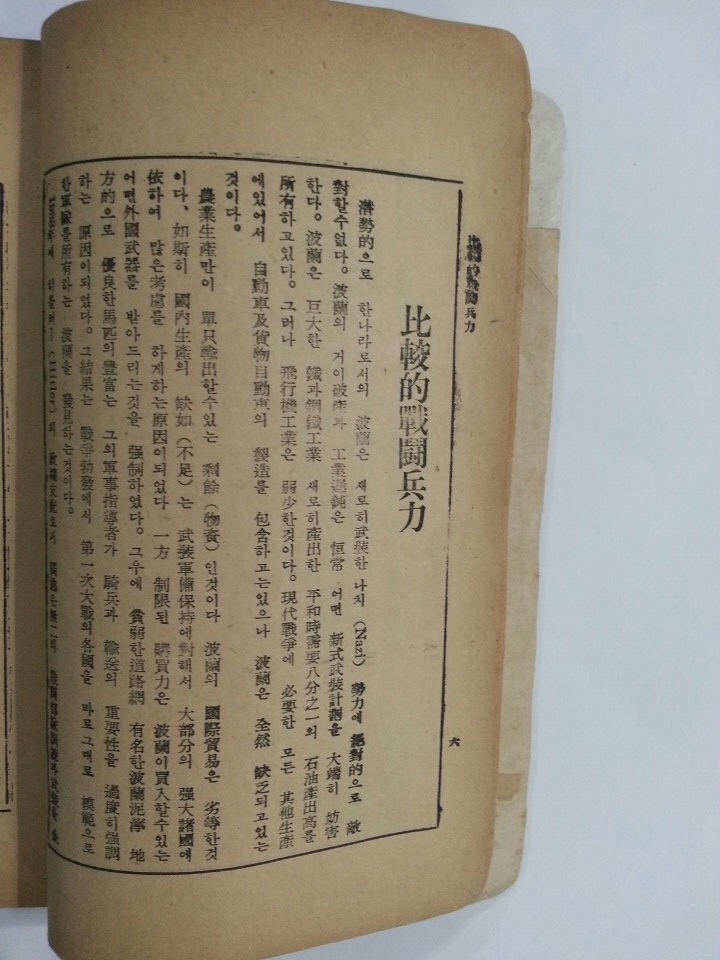 比較的戰鬪兵力
六
比較的戰鬪兵力
潛勢的으로 한나라로서의 波蘭은 새로히武裝한 나치 (Nazi) 勢力에 絕對的으로 敵
對할수없다。波蘭의 거이破產과 工業遲鈍은 恒常 어떤 新式武裝計劃을 大端히 妨害
한다。波蘭은 巨大한 鐵과鋼鐵工業 새로히產出한 平和時需要八分之一의 石油產出高를
所有하고있다。그러나 飛行機工業은 弱少한것이다。現代戰爭에 必要한 모든 其他生產
에있어서 自動車及貨物自動車의 製造를 包含하고는있으나 波蘭은 全然 缺乏되고있는
것이다。
農業生產만이 單只輸出할수있는 剩餘(物資)인것이다 波蘭의 國際貿易은 劣等한것
이다、如斯히 國內生產의 缺如(不足)는 武裝軍備保持에對해서 大部分의 强大諸國에
依하여 많은考慮를 하게하는原因이되었다 一方 制限된 購買力은 波蘭이買入할수있는
어떤外國武器를 받아드리는것을 强制하였다。그우에 貧弱한道路網 有名한波蘭泥濘 地
方的으로 優良한馬匹의豐富는 그의軍事指導者가 騎兵과 輸送의 重要性을 過度히强調
하는 原因이되었다。그結果는 戰爭勃發에서 第一次大戰의各國을 바로그대로 模範으로
한軍隊를所有하는 波蘭을 發見하는것이다。